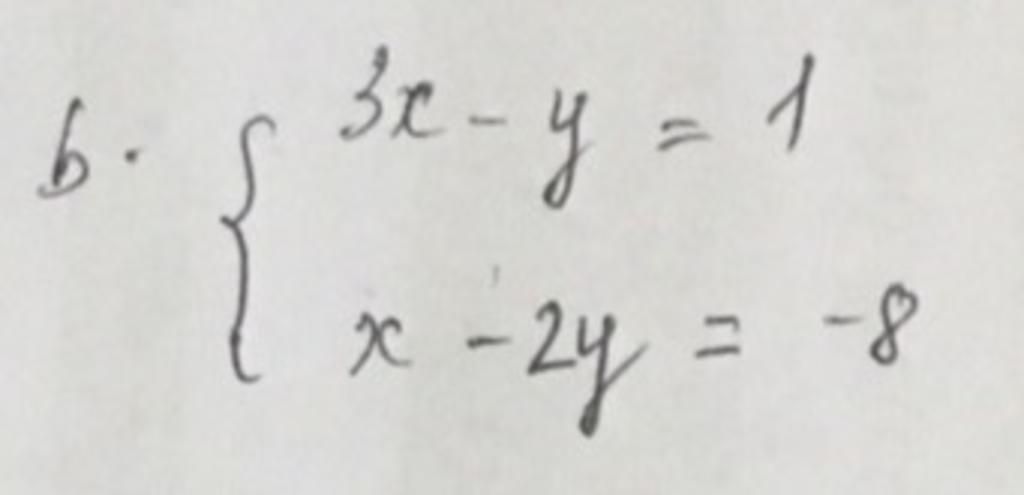 b. { 3x - y = 1
x - 2y = -8